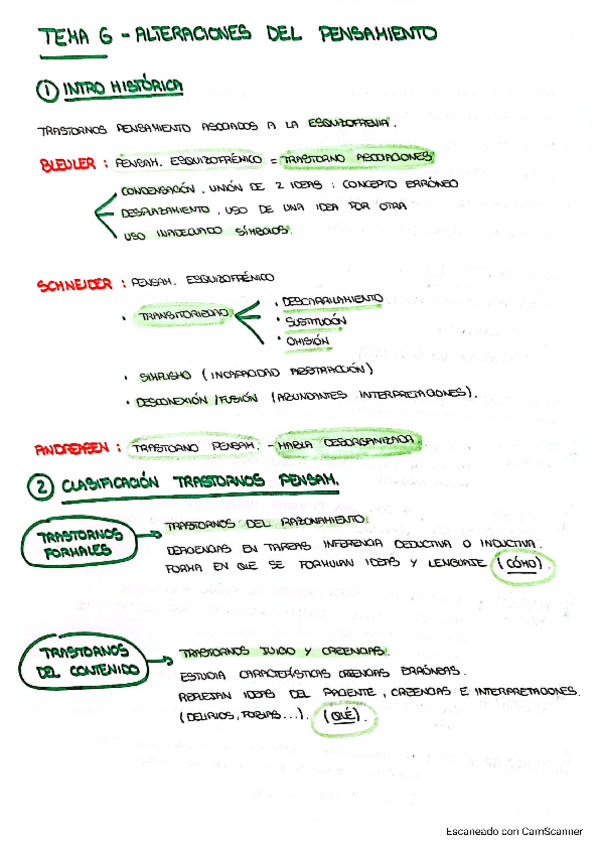 TEMA 6 - ALTERACIONES DEL PENSAMIENTO
① INTRO HISTÓRICA
TRASTORNOS PENSAMIENTO ASOCIADOS A LA ESQUIZOFRENIA.
BLEULER : PENSAM. ESQUIZOFRÉNICO = TRASTORNO ASOCIACIONES
CONDENSACIÓN, UNIÓN DE 2 IDEAS : CONCEPTO ERRÓNEO
DESPLAZAMIENTO, USO DE UNA IDEA POR OTRA
USO INADECUADO SÍMBOLOS.
SCHNEIDER : PENSAM. ESQUIZOFRÉNICO
· TRANSITORIEDAD
· DESCARRILAMIENTO
· SUSTITUCIÓN
· OMISIÓN
· SIMPLISMO (INCAPACIDAD ABSTRACCIÓN)
· DESCONEXIÓN/FUSIÓN (ABUNDANTES INTERPRETACIONES).
ANDREASEN : TRASTORNO PENSAM. - HABLA DESORGANIZADA
② CLASIFICACIÓN TRASTORNOS PENSAM.
TRASTORNOS FORMALES
TRASTORNOS DEL RAZONAMIENTO.
DEFICIENCIAS EN TAREAS INFERENCIA DEDUCTIVA O INDUCTIVA.
FORMA EN QUE SE FORMULAN IDEAS Y LENGUAJE (CÓMO).
TRASTORNOS DEL CONTENIDO
TRASTORNOS JUICIO Y CREENCIAS.
ESTUDIA CARACTERÍSTICAS CREENCIAS ERRÓNEAS.
REFLEJAN IDEAS DEL PACIENTE, CREENCIAS E INTERPRETACIONES.
(DELIRIOS, FOBIAS...). (QUÉ).
Escaneado con CamScanner